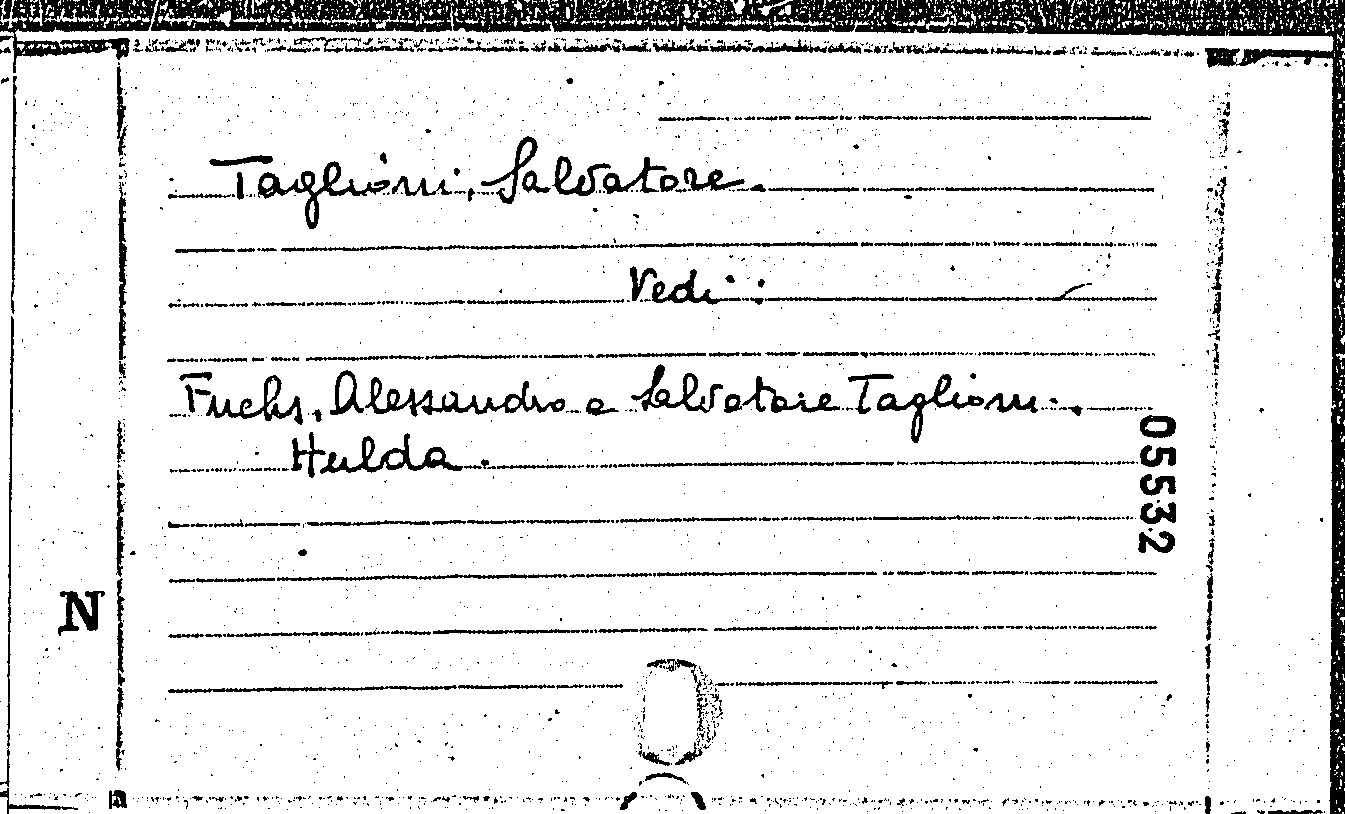 Taglioni, Salvatore.
Vedi:
Fuchs, Alessandro e Salvatore Taglioni.
Hulda.
05532
N